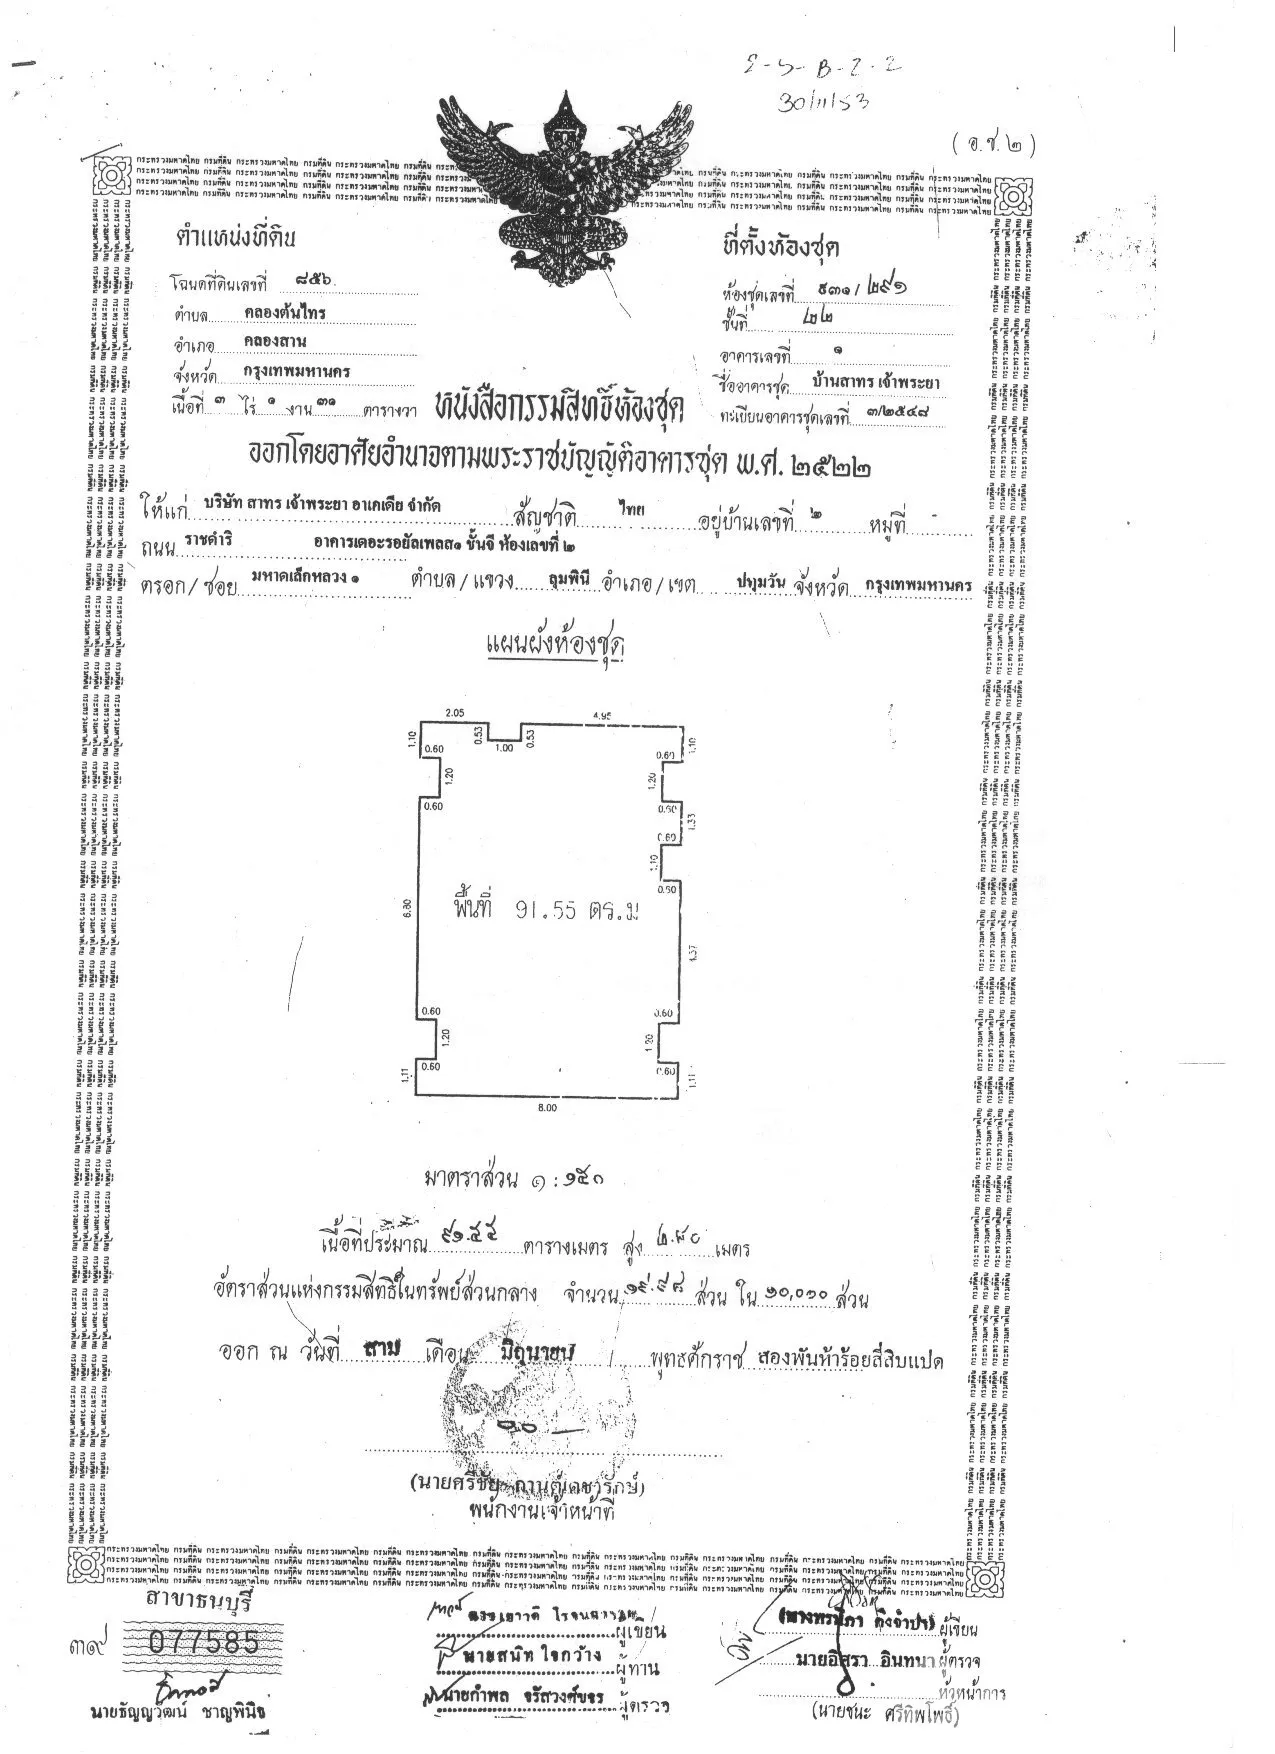 30/11/53
(อ.ช.๒)
ตำแหน่งที่ดิน
โฉนดที่ดินเลขที่ ๘๕๖
ตำบล คลองต้นไทร
อำเภอ คลองสาน
จังหวัด กรุงเทพมหานคร
เนื้อที่ ๓ ไร่ ๑ งาน ๓๑ ตารางวา
ที่ตั้งห้องชุด
ห้องชุดเลขที่ ๙๓๑/๒๙๑
ชั้นที่ ๒๒
อาคารเลขที่ ๑
ชื่ออาคารชุด บ้านสาทร เจ้าพระยา
ทะเบียนอาคารชุดเลขที่ ๓/๒๕๔๘
หนังสือกรรมสิทธิ์ห้องชุด
ออกโดยอาศัยอำนาจตามพระราชบัญญัติอาคารชุด พ.ศ. ๒๕๒๒
ให้แก่ บริษัท สาทร เจ้าพระยา อาเคเดีย จำกัด สัญชาติ ไทย อยู่บ้านเลขที่ ๒ หมู่ที่ -
ถนน ราชดำริ อาคารเดอะรอยัลเพลส๑ ชั้นจี ห้องเลขที่ ๒
ตรอก/ซอย มหาดเล็กหลวง ๑ ตำบล/แขวง ลุมพินี อำเภอ/เขต ปทุมวัน จังหวัด กรุงเทพมหานคร
แผนผังห้องชุด
2.05 4.95
1.10 0.53 0.53 1.10
0.60 1.00 0.60
1.20 1.20
0.60 0.60
1.33
0.60
1.10
0.60
6.80 พื้นที่ 91.55 ตร.ม
4.37
0.60 0.60
1.20 1.20
0.60 0.60
1.11 1.11
8.00
มาตราส่วน ๑ : ๑๕๐
เนื้อที่ประมาณ ๙๑.๕๕ ตารางเมตร สูง ๒.๘๐ เมตร
อัตราส่วนแห่งกรรมสิทธิ์ในทรัพย์ส่วนกลาง จำนวน ๑๙.๙๘ ส่วน ใน ๑๐,๐๑๐ ส่วน
ออก ณ วันที่ สาม เดือน มิถุนายน พุทธศักราช สองพันห้าร้อยสี่สิบแปด
(นายศรีชัย
พนักงานเจ้าหน้าที่
สาขาธนบุรี
๓๙ 077585
นายธัญญวัฒน์ ชาญพินิจ
ผู้เขียน
นายสนิท ใจกว้าง ผู้ทาน
นายกำพล จรัสวงศ์ขจร ผู้ตรวจ
ผู้เขียน
นายอิสรา อินทนา ผู้ตรวจ
หัวหน้าการ
(นายชนะ ศรีทิพโพธิ์)